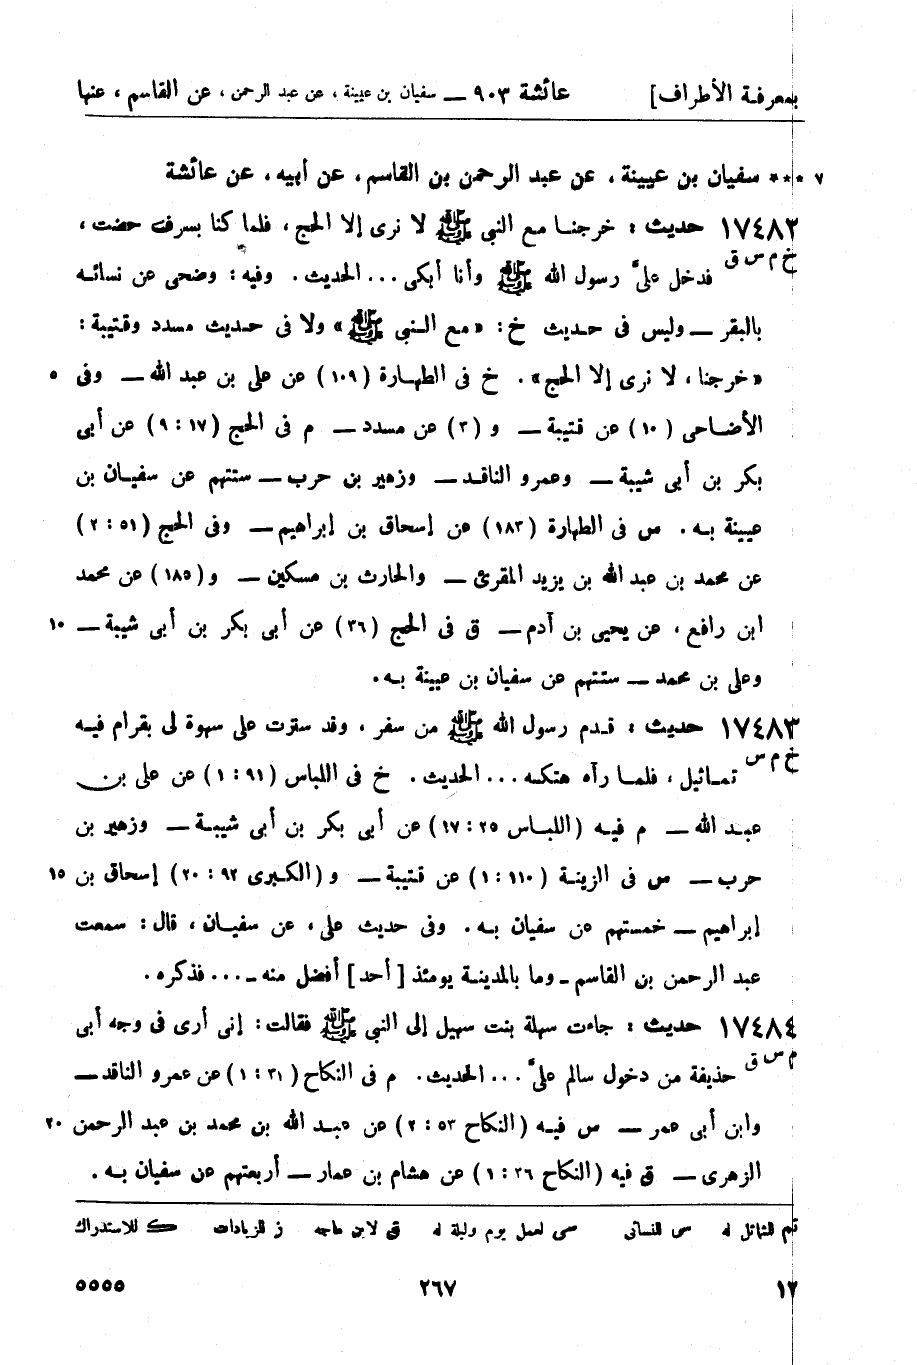 بمعرفة الأطراف] عائشة ٩٠٣ ــ سفيان بن عيينة ، عن عبد الرحمن ، عن القاسم ، عنها
٧ *** سفيان بن عيينة ، عن عبد الرحمن بن القاسم ، عن أبيه ، عن عائشة
١٧٤٨٢ حديث : خرجنا مع النبي ﷺ لا نرى إلا الحج ، فلما كنا بسرف حضت ،
خ م س ق فدخل علىّ رسول الله ﷺ وأنا أبكى ... الحديث . وفيه : وضحى عن نسائه
بالبقر ــ وليس فى حديث خ : «مع النبى ﷺ» ولا فى حديث مسدد وقتيبة :
«خرجنا ، لا نرى إلا الحج» . خ فى الطهارة (١٠٩) عن على بن عبد الله ــ وفى ٥
الأضاحى (١٠) عن قتيبة ــ و (٣) عن مسدد ــ م فى الحج (١٧ : ٩) عن أبى
بكر بن أبى شيبة ــ وعمرو الناقد ــ وزهير بن حرب ــ ستتهم عن سفيان بن
عيينة به . س فى الطهارة (١٨٣) عن إسحاق بن إبراهيم ــ وفى الحج (٥١ : ٢)
عن محمد بن عبد الله بن يزيد المقرئ ــ والحارث بن مسكين ــ و(١٨٥) عن محمد
ابن رافع ، عن يحيى بن آدم ــ ق فى الحج (٣٦) عن أبى بكر بن أبى شيبة ــ ١٠
وعلى بن محمد ــ ستتهم عن سفيان بن عيينة به .
١٧٤٨٣ حديث : قدم رسول الله ﷺ من سفر ، وقد سترت على سهوة لى بقرام فيه
خ م س تماثيل ، فلما رآه هتكه ... الحديث . خ فى اللباس (٩١ : ١) عن على بن
عبد الله ــ م فيه (اللباس ٢٥ : ١٧) عن أبى بكر بن أبى شيبة ــ وزهير بن
حرب ــ س فى الزينة (١١٠ : ١) عن قتيبة ــ و (الكبرى ٩٢ : ٢٠) إسحاق بن ١٥
إبراهيم ــ خمستهم عن سفيان به . وفى حديث على ، عن سفيان ، قال : سمعت
عبد الرحمن بن القاسم ـ وما بالمدينة يومئذ [أحد] أفضل منه ـ ... فذكره .
١٧٤٨٤ حديث : جاءت سهلة بنت سهيل إلى النبي ﷺ فقالت : إنى أرى فى وجه أبى
م س ق حذيفة من دخول سالم علىّ ... الحديث . م فى النكاح (٣١ : ١) عن عمرو الناقد ــ
وابن أبى عمر ــ س فيه (النكاح ٥٣ : ٢) عن عبد الله بن محمد بن عبد الرحمن ٢٠
الزهرى ــ ق فيه (النكاح ٣٦ : ١) عن هشام بن عمار ــ أربعتهم عن سفيان به .
تم للشمائل له س للنسائى سى لعمل يوم وليلة له ق لابن ماجه ز للزيادات ك للاستدراك
١٢ ٢٦٧ ٥٥٥٥